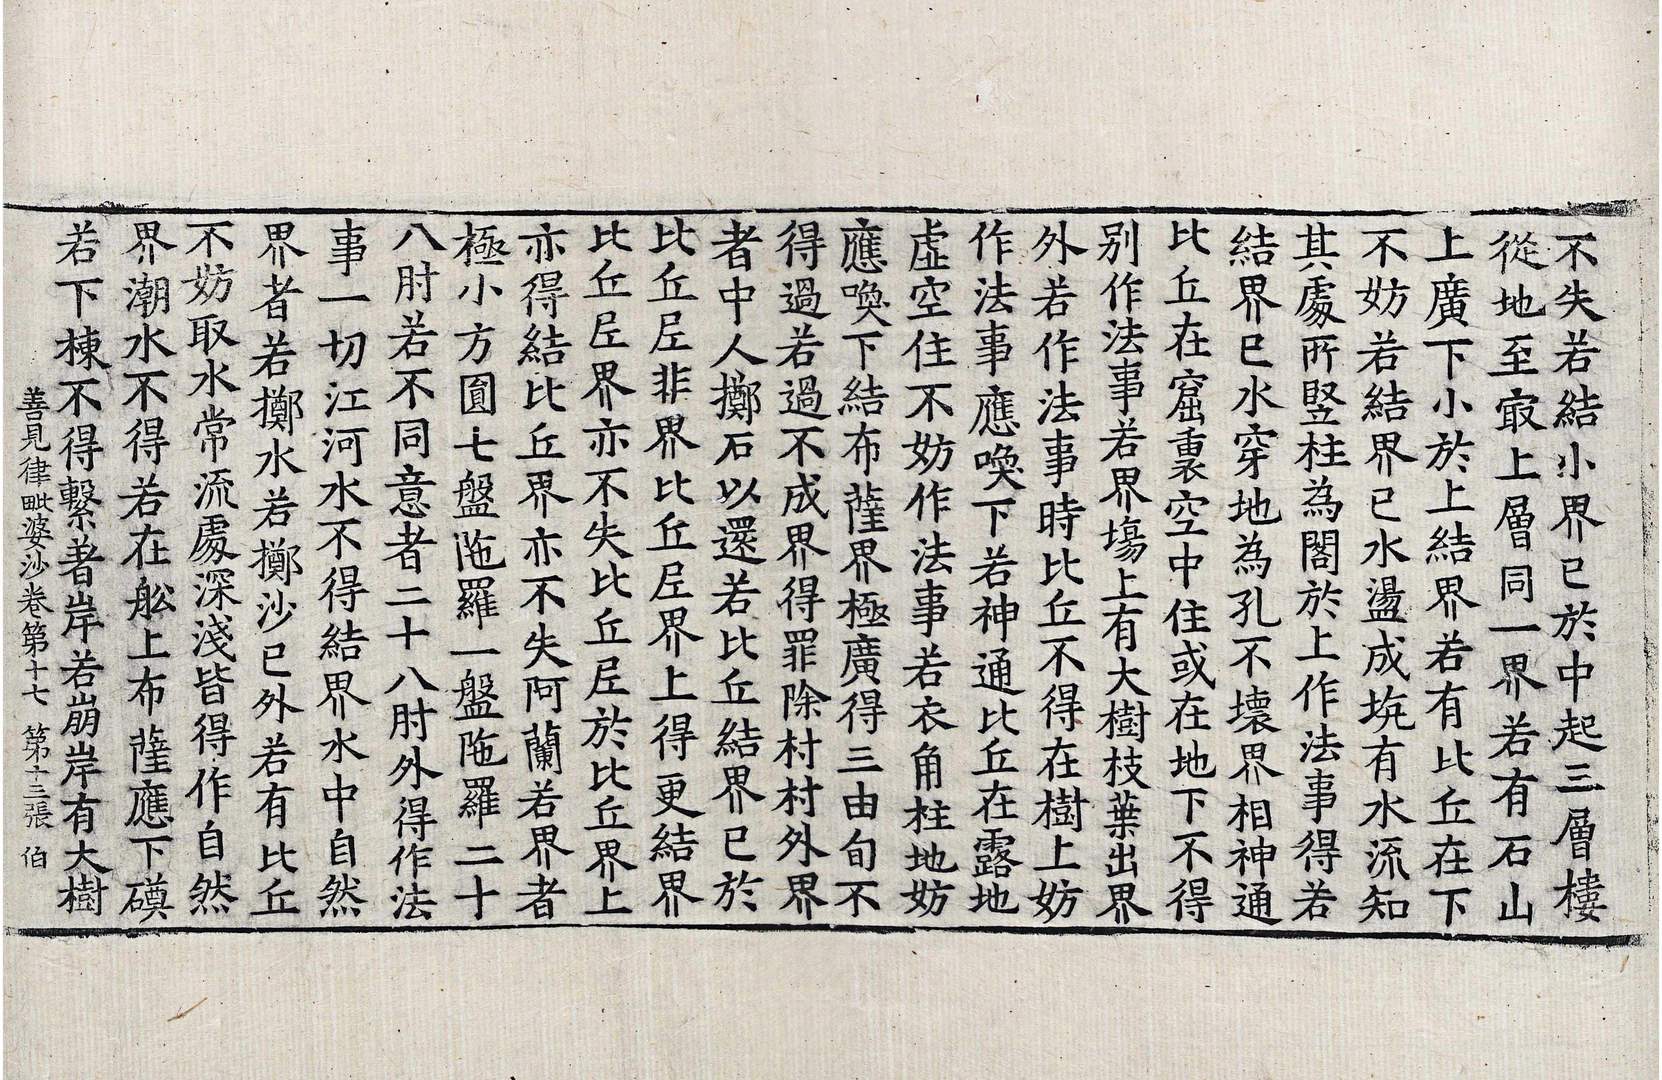 不失若結小界已於中起三層樓
從地至㝡上層同一界若有石山
上廣下小於上結界若有比丘在下
不妨若結界已水盪成坑有水流知
其處所竪柱為閣於上作法事得若
結界已水穿地為孔不壞界相神通
比丘在窟裏空中住或在地下不得
別作法事若界場上有大樹枝葉出界
外若作法事時比丘不得在樹上妨
作法事應喚下若神通比丘在露地
虛空住不妨作法事若衣角柱地妨
應喚下結布薩界極廣得三由旬不
得過若過不成界得罪除村村外界
者中人擲石以還若比丘結界已於
比丘尼非界比丘尼界上得更結界
比丘尼界亦不失比丘尼於比丘界上
亦得結比丘界亦不失阿蘭若界者
極小方圓七盤陁羅一盤陁羅二十
八肘若不同意者二十八肘外得作法
事一切江河水不得結界水中自然
界者若擲水若擲沙已外若有比丘
不妨取水常流處深淺皆得作自然
界潮水不得若在舩上布薩應下碇
若下棟不得繫著岸若崩岸有大樹
善見律毗婆沙卷第十七　第十三張　伯